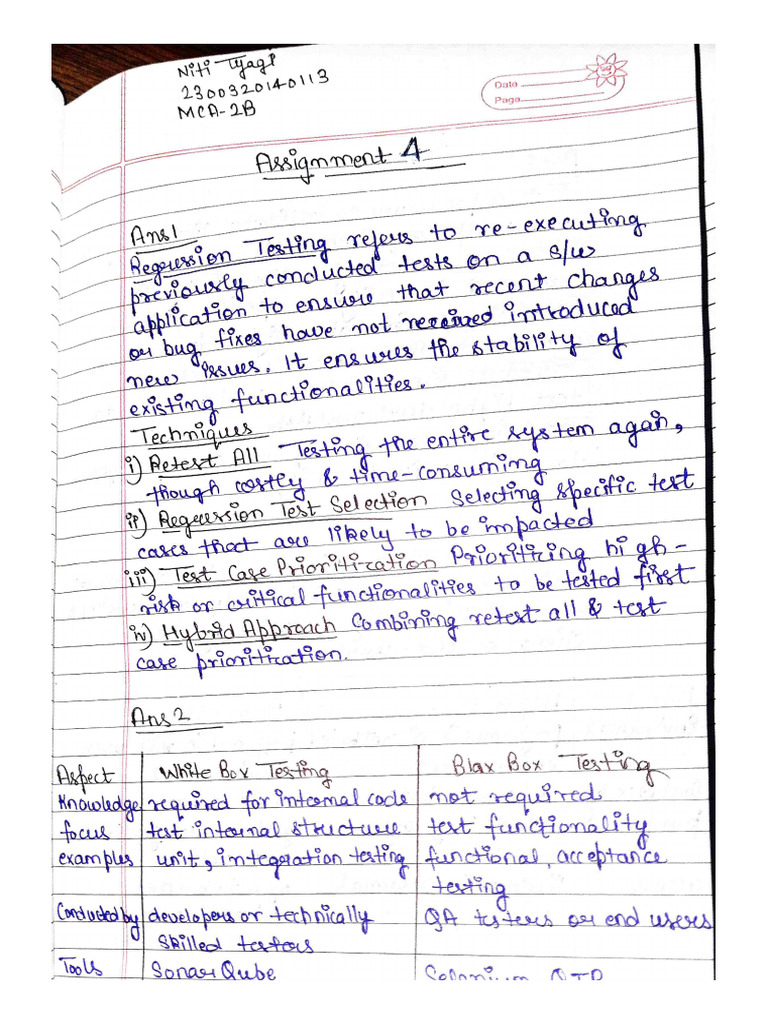 Niti Tyagi
2300320140113
MCA-2B
Date
Page
Assignment 4
Ans1
Regression Testing refers to re-executing
previously conducted tests on a s/w
application to ensure that recent changes
or bug fixes have not introduced
new issues. It ensures the stability of
existing functionalities.
Techniques
i) Retest All Testing the entire system again,
though costly & time-consuming
ii) Regression Test Selection Selecting specific test
cases that are likely to be impacted
iii) Test Case Prioritization Prioritizing high-
risk or critical functionalities to be tested first
iv) Hybrid Approach Combining retest all & test
case prioritization.
Ans2
Aspect White Box Testing Blax Box Testing
Knowledge required for internal code not required
focus test internal structure test functionality
examples unit, integration testing functional, acceptance
testing
Conducted by developers or technically QA testers or end users
skilled testers
Tools SonarQube